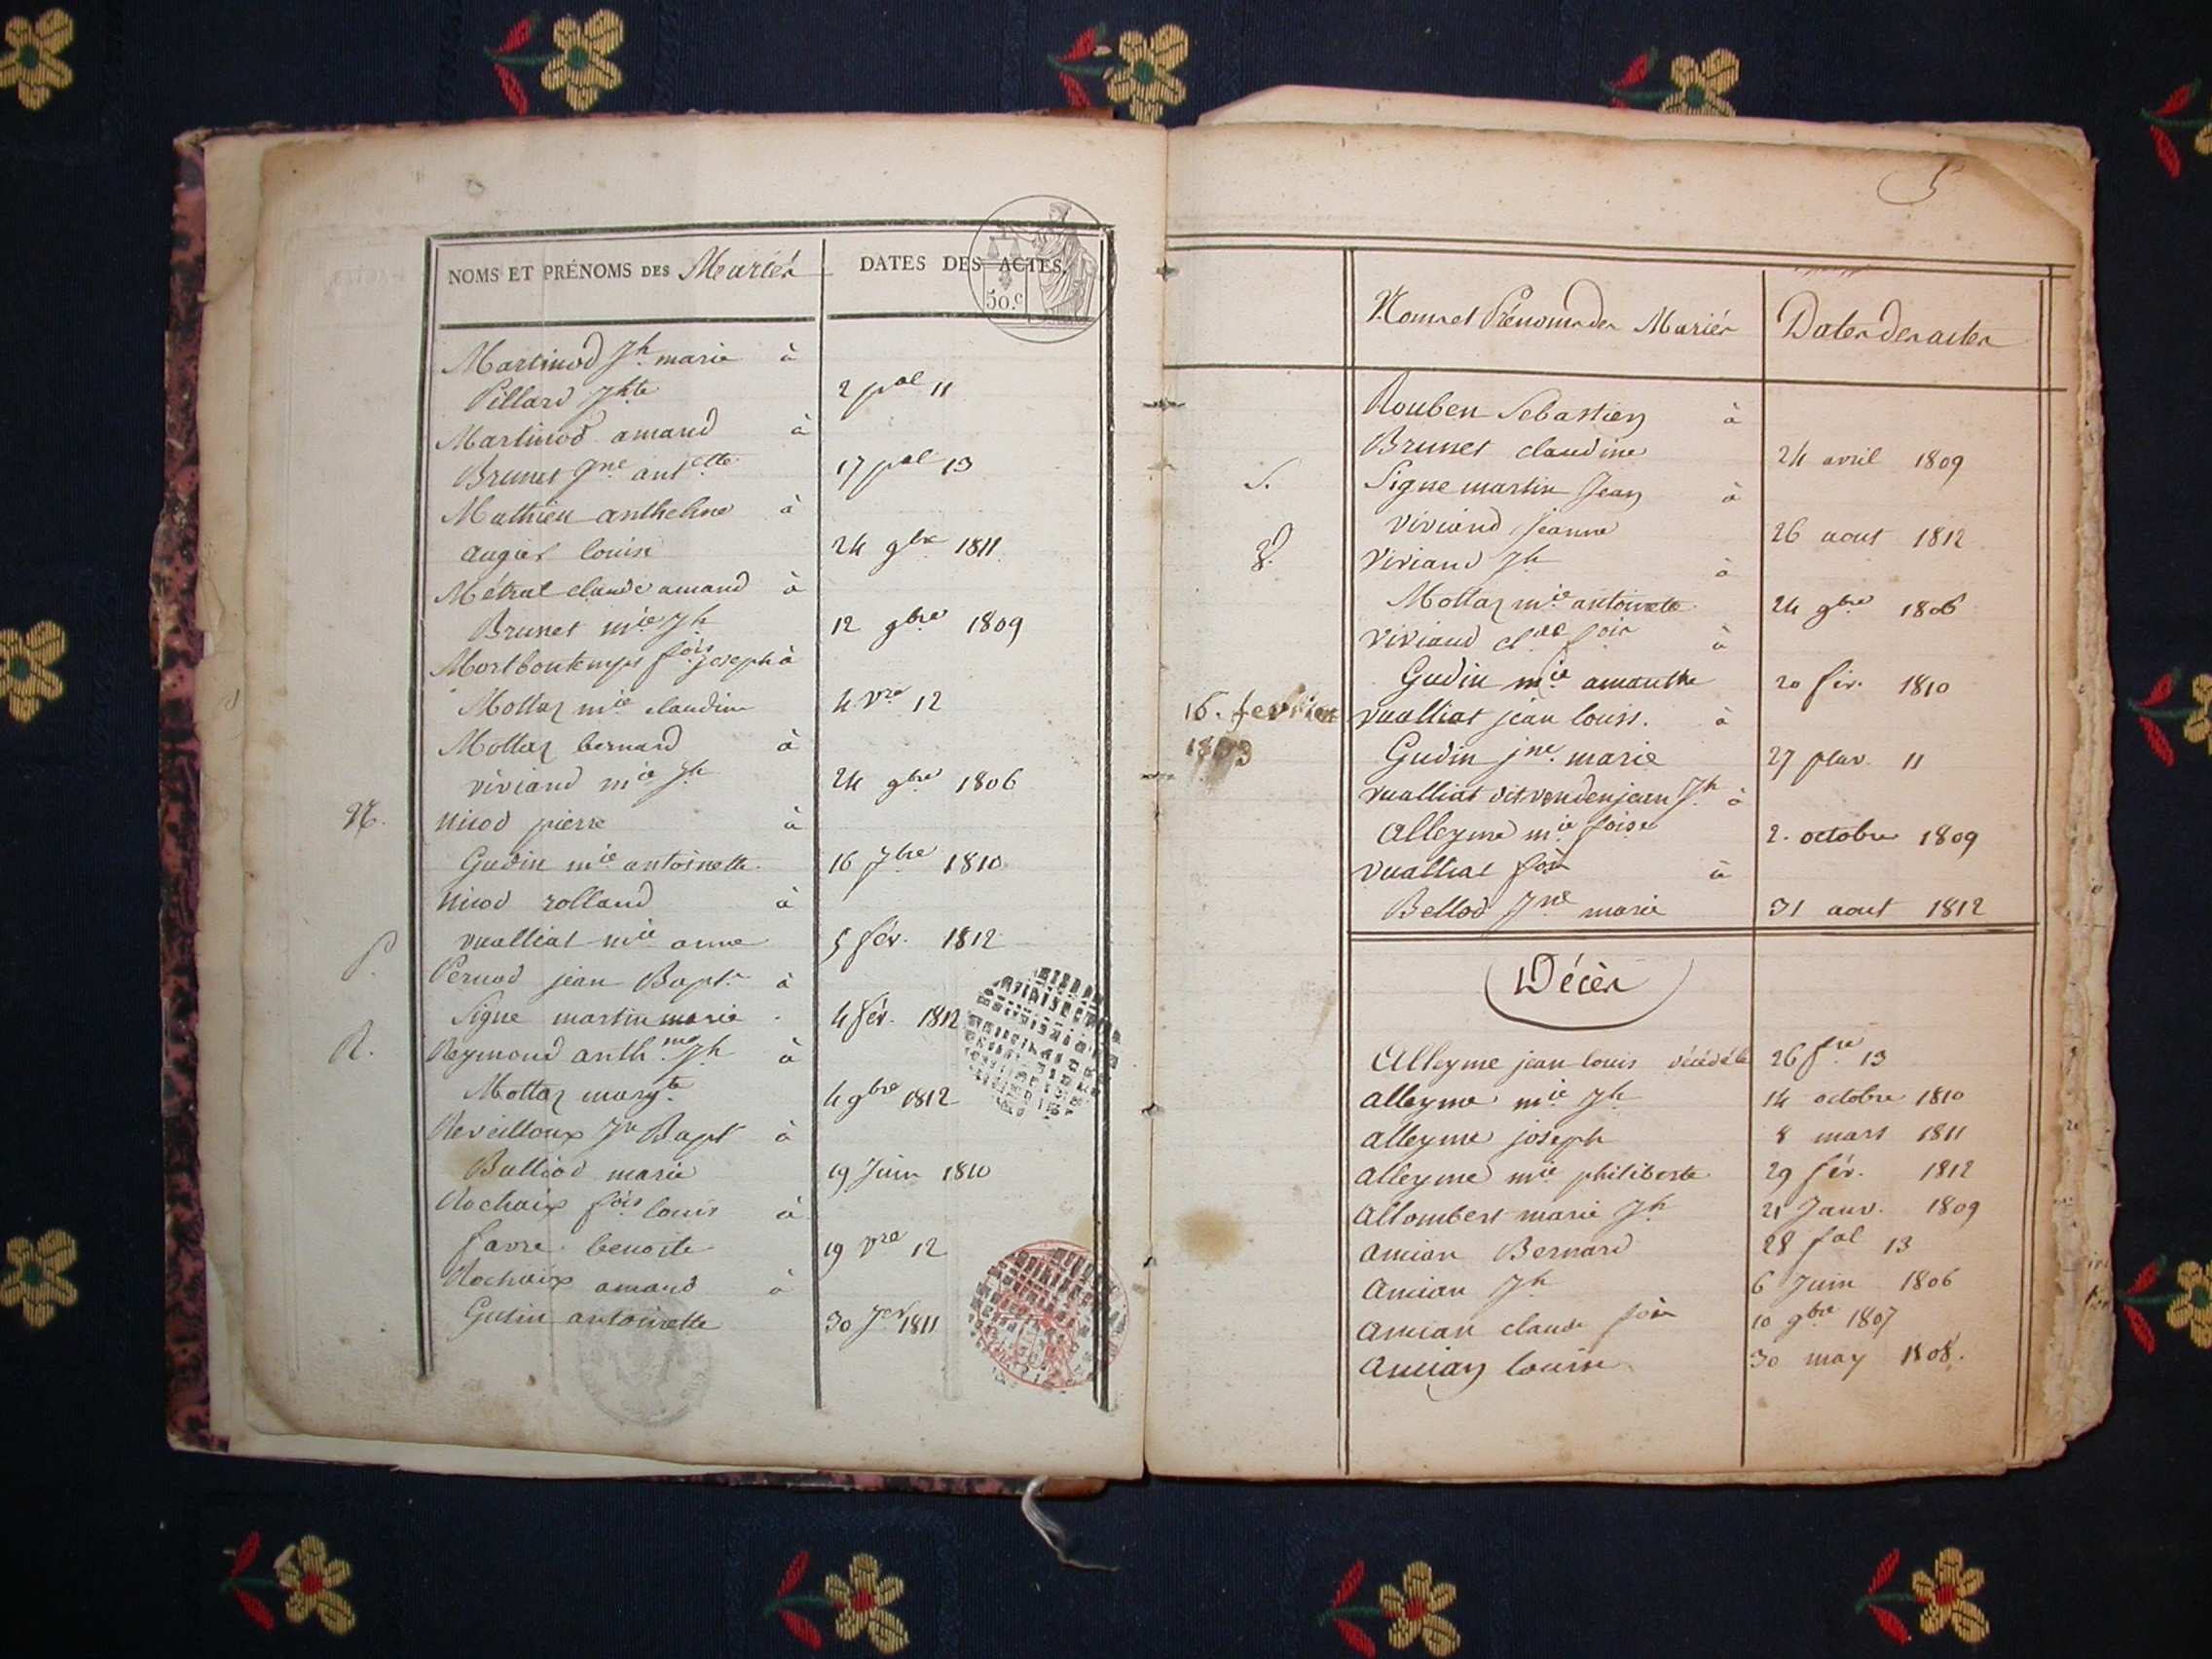 NOMS ET PRÉNOMS DES Mariés
DATES DES ACTES
50.c
Martinod Jh marie à
Pillard Jhte 2 pal 11
Martinod amand à
Brunet Jne antelle 17 pal 13
Mathieu anthelme à
augier louise 24 9bre 1811
Métral claude amand à
Brunet mie Jh 12 9bre 1809
Mortbontemps fois joseph à
Mottaz mie claudine 4 vre 12
Mottaz bernard à
viviand mie Jh 24 9bre 1806
N. Nicod pierre à
Gudin mie antoinette 16 7bre 1810
Nicod rolland à
vualliat mie anne 5 fév. 1812
P. Pernod jean Bapte à
Signe martin marie 4 fév. 1812
R. Reymond anthme Jh à
Mottaz margte 4 9bre 1812
Reveilloux Jn Bapt à
Balliod marie 19 Juin 1810
Rochaix fois louis à
favre benoite 19 vre 12
Rochaix amand à
Gudin antoinette 30 Jer 1811
5
Noms et Prénoms des Mariés
Dates des actes
Rouben Sebastien à
Brunet claudine 24 avril 1809
S. Signe martin Jean à
viviand Jeanne 26 aout 1812
V. Viviand Jh à
Mottaz mie antoinette 24 9bre 1806
viviand cde fois à
Gudin mie amanthe 20 fév. 1810
16. fevrier vualliat jean louis. à
1803 Gudin jne marie 27 pluv. 11
vualliat dit vonden jean Jh à
Alleyme mie foise 2. octobre 1809
vualliat fois à
Bellod Jne marie 31 aout 1812
Décès
Alleyme jean louis décédé le 26 fre 13
alleyme mie Jh 14 octobre 1810
alleyme joseph 8 mars 1811
alleyme mie philiberte 29 fév. 1812
allombert marie Jh 21 Janv. 1809
amian Bernard 28 fal 13
amian Jh 6 Juin 1806
amian claude fois 10 9bre 1807
amian louise 30 may 1808.